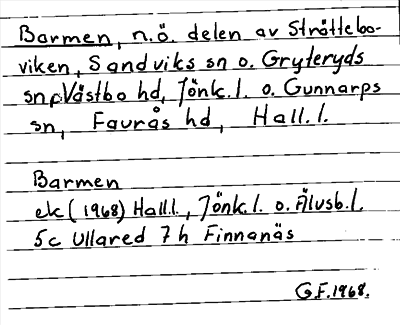 Barmen, n.ö. delen av Stråttebo-
viken, Sandviks sn o. Gryteryds
sn, Västbo hd, Jönk.l. o. Gunnarps
sn, Faurås hd, Hall.l.
Barmen
ek (1968) Hall.l., Jönk.l. o. Älvsb.l.
5c Ullared 7h Finnanäs
G.F. 1968.